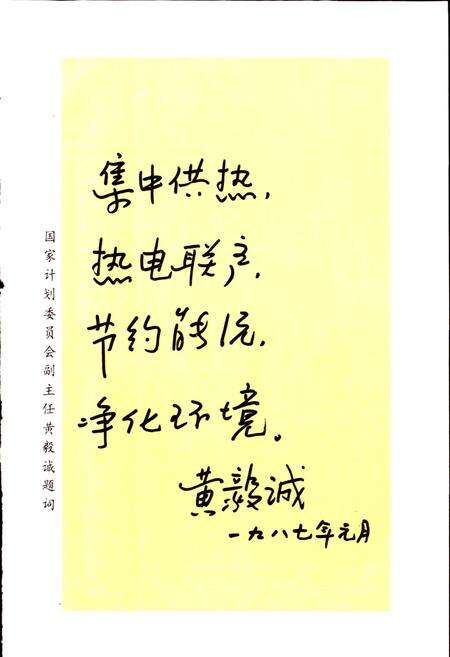 集中供热,
热电联产,
节约能源,
净化环境。
黄毅诚
一九八七年元月
国家计划委员会副主任黄毅诚题词